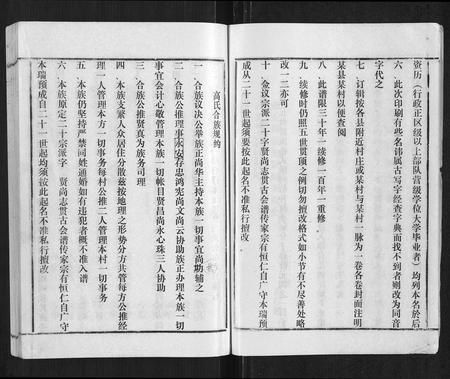 资历（行政正区级以上部队营级学位大学毕业者）均列本名於后
六 此次印刷有些名讳属古写字经查字典而找不到者则改为同音
字代之
七 订辑按各县附近村庄或某村与某村一脉为一卷各卷封面注明
某县某村以便查阅
八 此谱限三十年一续修一百年一重修
九 续修时仍照五世贯顶之例切勿擅改格式如小节有不尽善处略
改一二亦可
十 佥议宗派二十字贤尚志贯古会谱传家宗有恒仁自广守本瑞预
成从二十一世起须要按此起名不准私行擅改
高氏合族规约
一 合族议决公举族正尚华主持本族一切事宜尚勋辅之
二 合族公推理事永安存忠鸿宪尚文尚云协助族正办理本族一切
事宜会计心敬管理本族一切帐目贤昌尚永心珠三人协助
三 合族公推贤真为族务司理
四 本族支繁人众居住分散兹按地理之形势分方共管每方公推经
理一人管理本方一切事务每村公推二人管理本村一切事务
五 本族仍坚持严禁同姓通婚如有违犯者概不准入谱
六 本族原定二十宗派字 贤尚志贯古会谱传家宗有恒仁自广守
本瑞预成自二十一世起均须按此起名不准私行擅改